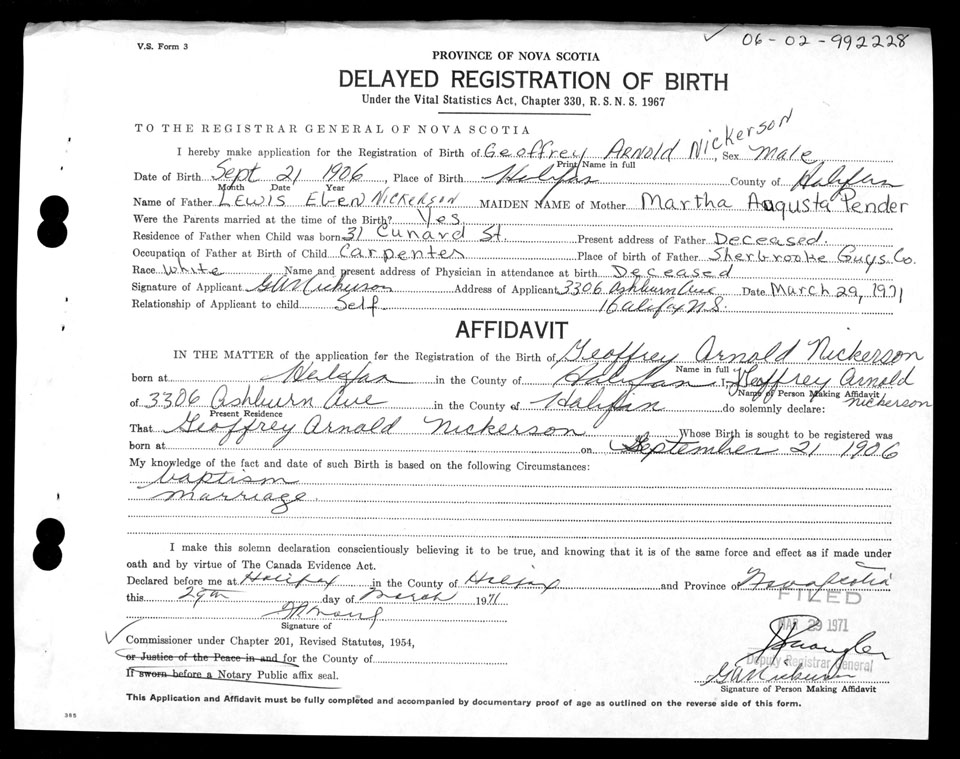 V.S. Form 3
06-02-992228
PROVINCE OF NOVA SCOTIA
DELAYED REGISTRATION OF BIRTH
Under the Vital Statistics Act, Chapter 330, R.S.N.S. 1967
TO THE REGISTRAR GENERAL OF NOVA SCOTIA
I hereby make application for the Registration of Birth of Geoffrey Arnold Nickerson, Sex Male
Print Name in full
Date of Birth Sept 21 1906, Place of Birth Halifax County of Halifax
Month Date Year
Name of Father Lewis Eben Nickerson MAIDEN NAME of Mother Martha Augusta Pender
Were the Parents married at the time of the Birth? Yes
Residence of Father when Child was born 31 Cunard St. Present address of Father Deceased.
Occupation of Father at Birth of Child Carpenter Place of birth of Father Sherbrooke Guys. Co.
Race White Name and present address of Physician in attendance at birth Deceased
Signature of Applicant GA Nickerson Address of Applicant 3306 Ashburn Ave Date March 29, 1971
Relationship of Applicant to child Self. Halifax N.S.
AFFIDAVIT
IN THE MATTER of the application for the Registration of the Birth of Geoffrey Arnold Nickerson
Name in full
born at Halifax in the County of Halifax I, Geoffrey Arnold Nickerson
Name of Person Making Affidavit
of 3306 Ashburn Ave in the County of Halifax do solemnly declare:
Present Residence
That Geoffrey Arnold Nickerson Whose Birth is sought to be registered was
born at on September 21 1906
My knowledge of the fact and date of such Birth is based on the following Circumstances:
baptism
marriage
I make this solemn declaration conscientiously believing it to be true, and knowing that it is of the same force and effect as if made under
oath and by virtue of The Canada Evidence Act.
Declared before me at Halifax in the County of Halifax and Province of Nova Scotia
this 29th day of March 1971
FILED
MAR 29 1971
Signature of
Commissioner under Chapter 201, Revised Statutes, 1954,
or Justice of the Peace in and for the County of
Deputy Registrar General
If sworn before a Notary Public affix seal.
GA Nickerson
Signature of Person Making Affidavit
This Application and Affidavit must be fully completed and accompanied by documentary proof of age as outlined on the reverse side of this form.
385